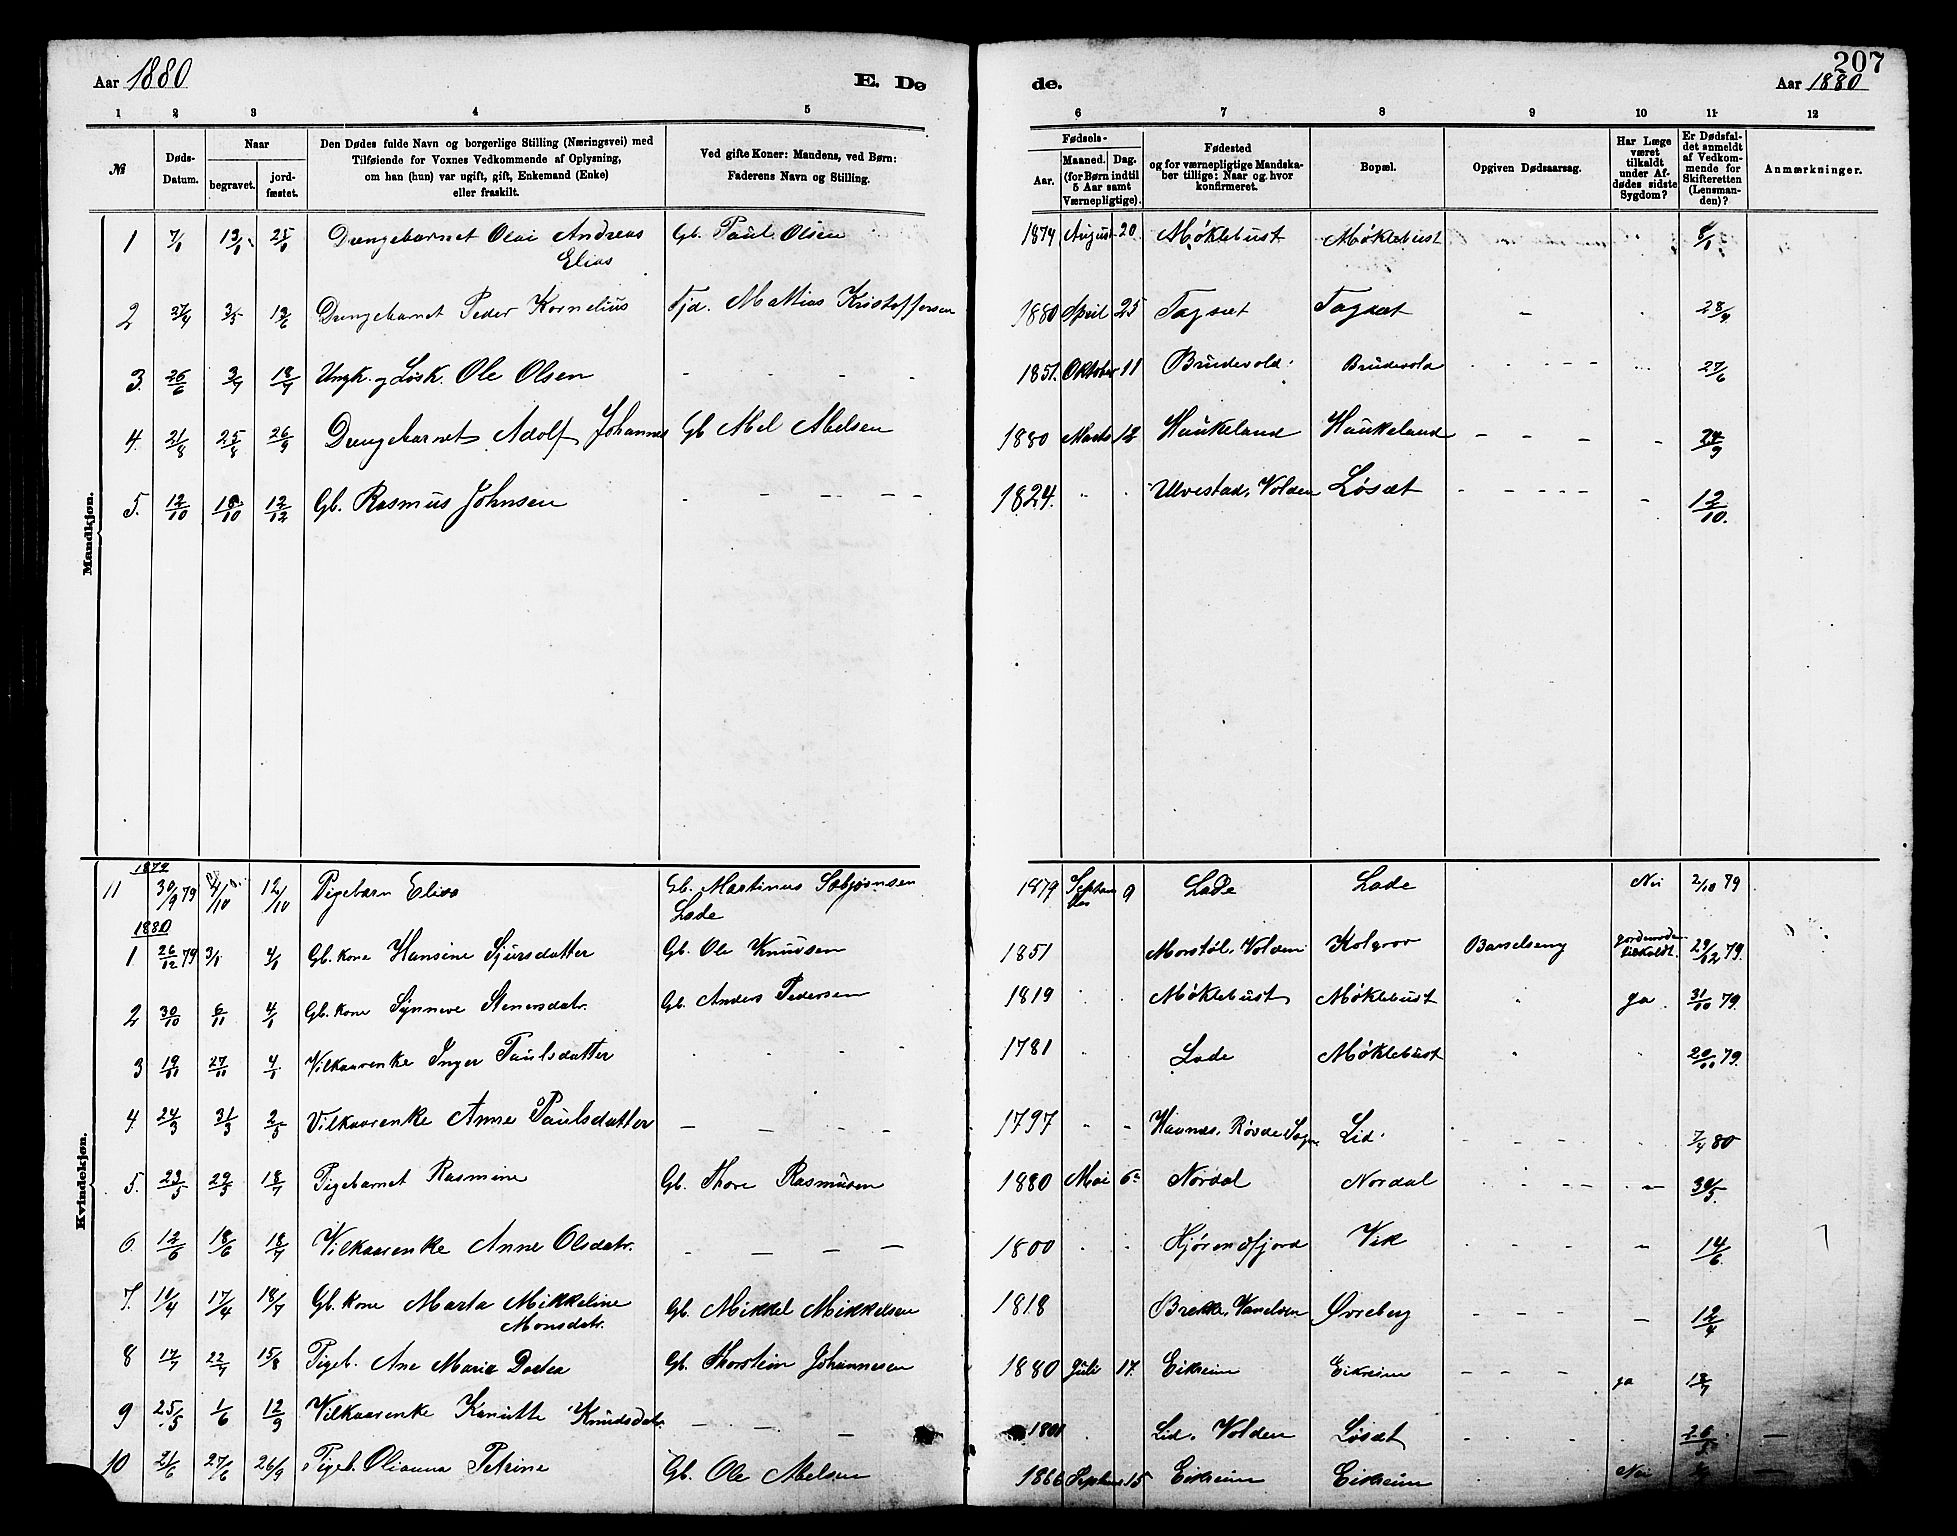 207
Aar 1880 E. Dø
de. Aar 1880
1 2 3 4 5
6 7 8 9 10 11 12
№ Døds-Datum. Naar begravet. jordfæstet. Den Dødes fulde Navn og borgerlige Stilling (Næringsvei) med Tilføiende for Voxnes Vedkommende af Oplysning, om han (hun) var ugift, gift, Enkemand (Enke) eller fraskilt. Ved gifte Koner: Mandens, ved Børn: Faderens Navn og Stilling.
Fødsels- Aar. Maaned. Dag. (for Børn indtil 5 Aar samt Værnepligtige). Fødested og for værnepligtige Mandskaber tillige: Naar og hvor konfirmeret. Bopæl. Opgiven Dødsaarsag. Har Læge været tilkaldt under Afdødes sidste Sygdom? Er Dødsfaldet anmeldt af Vedkommende for Skifteretten (Lensmanden)? Anmærkninger.
Mandkjøn.
1 7/1 13/1 25/1 Drengebarnet Olai Andreas Elias Gb. Paul Olsen 1874 August 20 Møklebust Møklebust 8/1
2 27/4 3/5 13/6 Drengebarnet Peder Kornelius Tjd. Mattias Kristoffersen 1880 April 25 Tagsæt Tagsæt - 28/4
3. 26/6 3/7 18/7 Ungk. og Løsk. Ole Olsen - - - 1851. Oktober 11 Brudevold Brudevold - - - - 27/6
4. 21/8 25/8 26/9 Drengebarnet Adolf Johannes Gb Abel Abelsen 1880 Marts 12 Haukeland Haukeland - - - - 24/9
5. 12/10 18/10 12/12 Gb. Rasmus Johnsen - - - - - 1824. Ulvestad, Volden Løsæt - - - - - 12/10.
Kvindekjøn.
1879
11 30/9 79 4/10 12/10 Pigebarn Elisa Gb. Martinus Sabjørnsen Lade 1879 September 9 Lade Lade Nei 2/10 79
1880
1 26/12 79 3/1 4/1 Gb. kone Hansine Sjursdatter Gb. Ole Knudsen 1851 Morstøl, Volden Kolgrov Barselseng Jordemoder tilkaldt. 29/12 79.
2 30/10 6/11 4/1 Gb. kone Synneve Stenersdatr. Gb. Anders Pedersen 1819 Møklebust Møklebust ja. 31/10 79.
3 19/11 27/11 4/1 Vilkaarenke Inger Paulsdatter 1781 Lade Møklebust 20/11 79.
4. 24/3 31/3 2/5 Vilkaarenke Anne Paulsdatter - - - - 1797 - - Havnes, Røvde Sogn Lid. 7/4 80
5. 23/5 29/5 18/7 Pigebarnet Rasmine Gb. Thore Rasmusen 1880 Mai 6. Nordal Nordal - - - 30/5.
6. 12/6 18/6 18/7 Vilkaarenke Anne Olsdatr. - - - - 1800 Hjørendfjord Vik 14/6.
7. 11/4 17/4 18/7 Gb. kone Marta Mikkeline Monsdatr. Gb. Mikkel Mikkelsen 1818 Brekke, Vanelven Øvreberg - - - - 12/4
8 17/7 22/7 15/8 Pigeb. Ane Maria Dortea Gb. Thorstein Johannesen 1880 Juli 17. Eikreim Eikreim - - - ja 18/7
9 25/5 1/6 12/9 Vilkaarenke Kanutte Knudsdatr. - - - 1801 Lid, Volden Løsæt 26/5
10 21/6 27/6 26/9 Pigeb. Olianna Petrine Gb. Ole Abelsen 1866 Septem 15 Eikreim Eikreim Nei